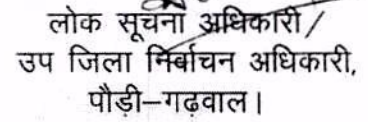 लोक सूचना अधिकारी /
उप जिला निर्वाचन अधिकारी,
पौड़ी–गढ़वाल।